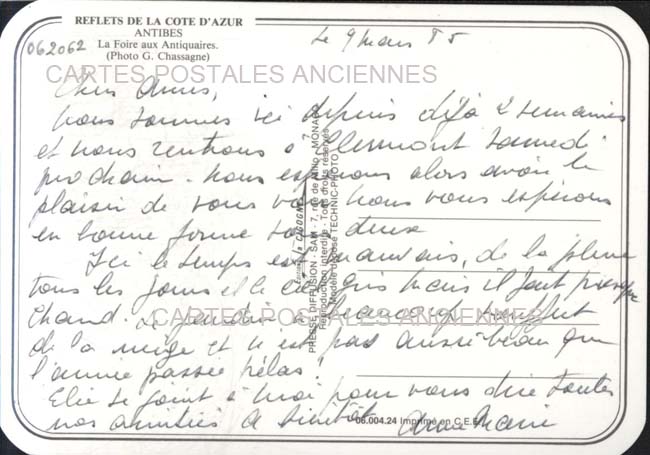 REFLETS DE LA COTE D'AZUR
ANTIBES
La Foire aux Antiquaires.
(Photo G. Chassagne)
062062
Le 9 Mars 85
CARTES POSTALES ANCIENNES
Chers Amis,
Nous sommes ici depuis déjà 2 semaines
et nous rentrons à Clermont samedi
prochain. Nous espérons alors avoir le
plaisir de vous voir. Nous vous espérons
en bonne forme tous deux
Ici le temps est mauvais, de la pluie
tous les jours et le ciel gris mais il fait presque
chaud. Le jardin a beaucoup souffert
de la neige et n'est pas aussi beau que
l'année passée hélas!
Elie se joint à moi pour vous dire toutes
nos amitiés à bientôt Anne Marie
CARTES POSTALES ANCIENNES
PRESSE DIFFUSION - SAM - 7, rue de Millo - MONACO
Reproduction interdite - Tous droits réservés
Modèle déposé TECHNIC-PHOTO
06.004.24 Imprimé en C.E.E.